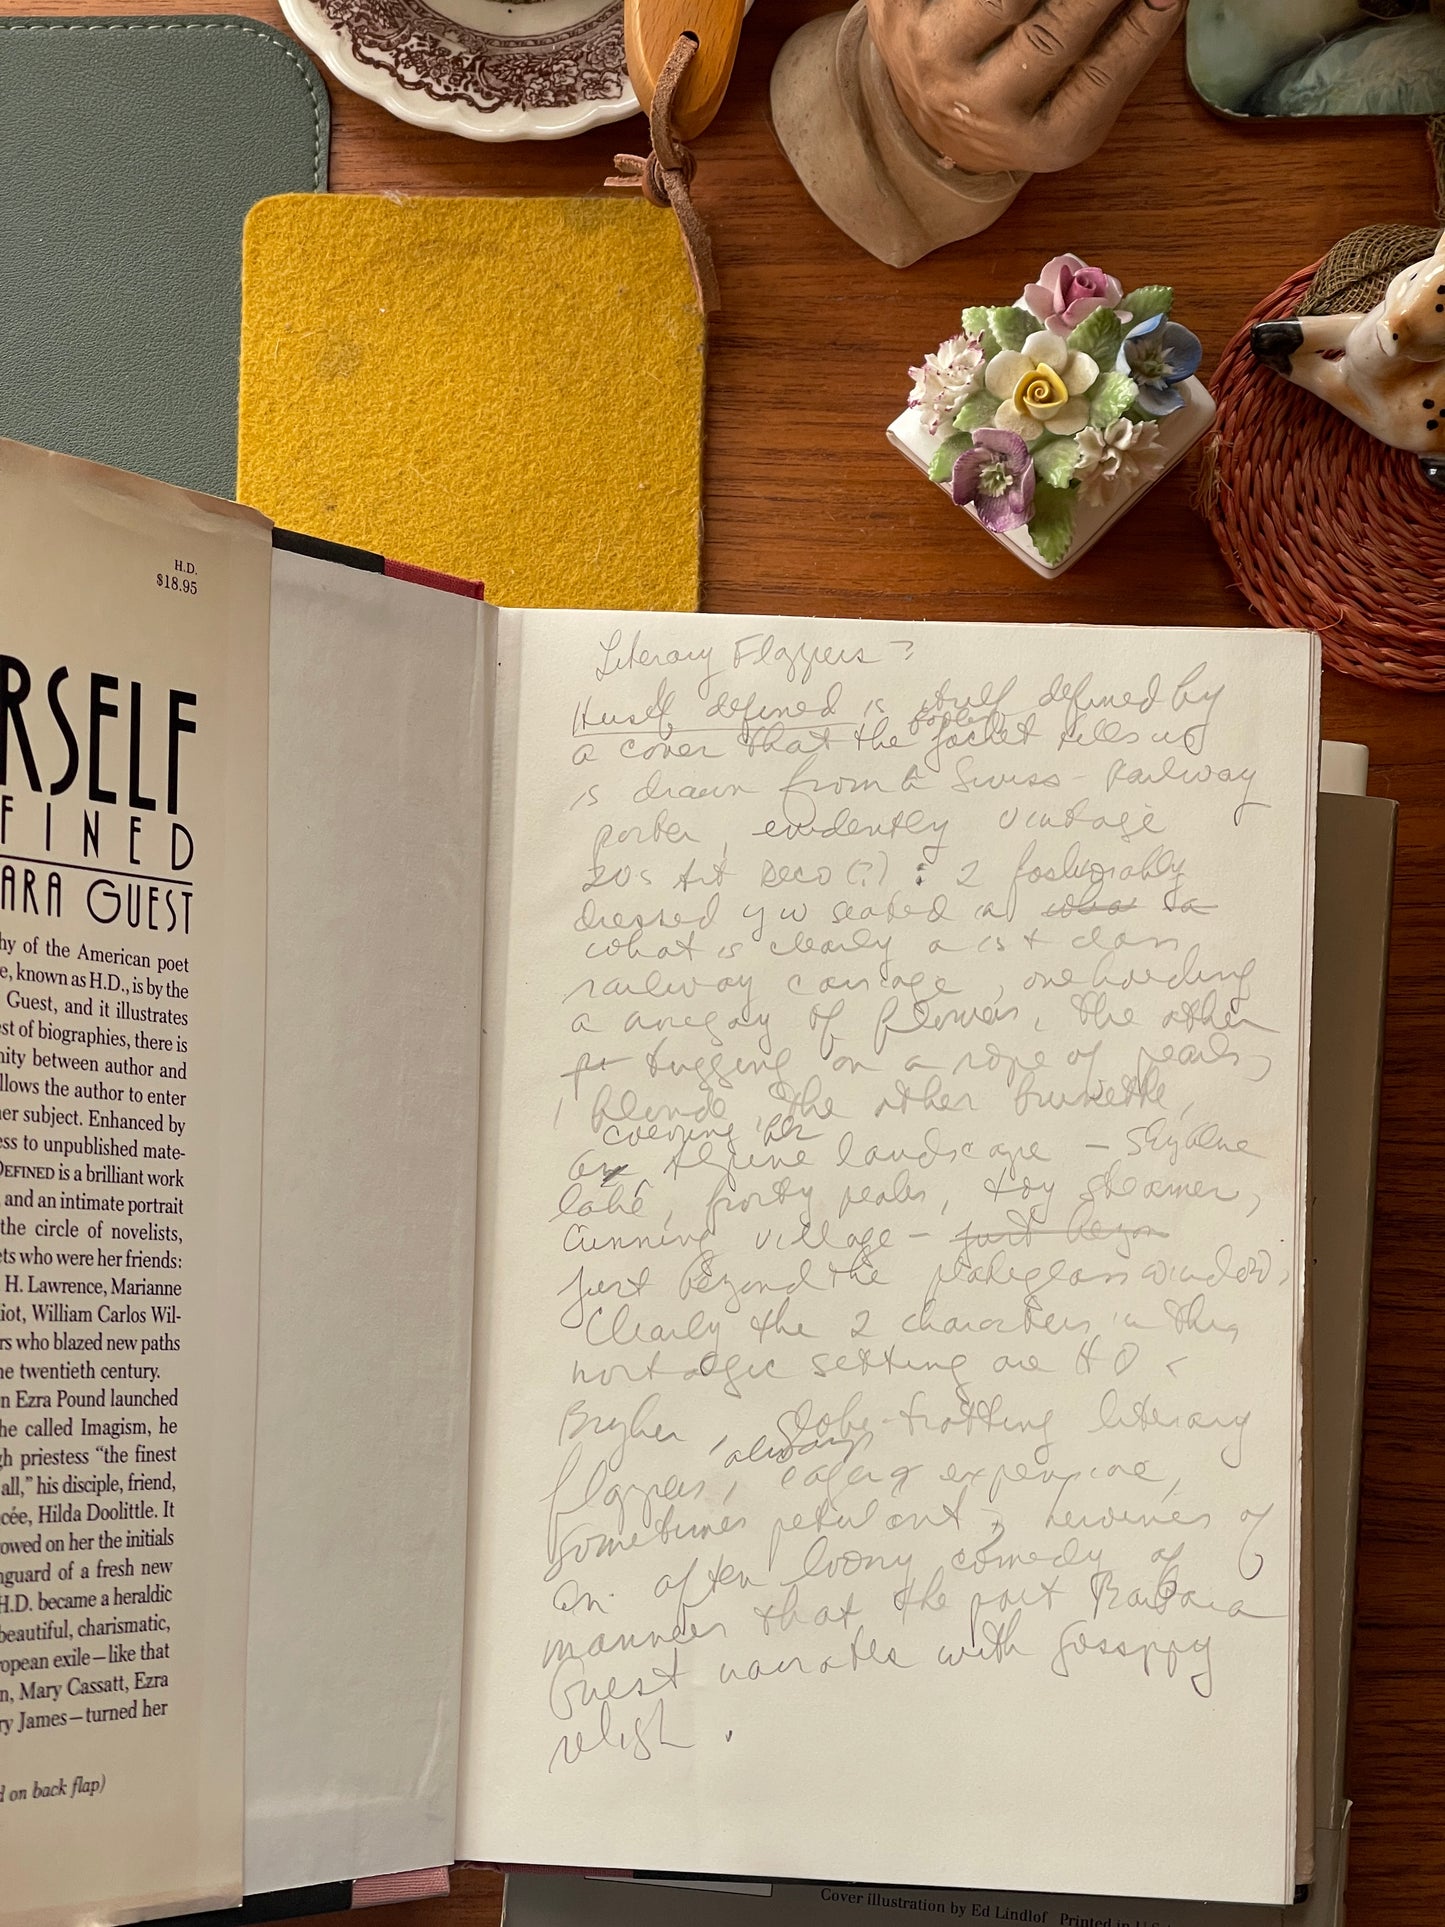 H.D.
$18.95
RSELF
FINED
ARA GUEST
hy of the American poet
e, known as H.D., is by the
Guest, and it illustrates
est of biographies, there is
nity between author and
llows the author to enter
her subject. Enhanced by
ess to unpublished mate-
DEFINED is a brilliant work
and an intimate portrait
the circle of novelists,
ets who were her friends:
H. Lawrence, Marianne
iot, William Carlos Wil-
rs who blazed new paths
he twentieth century.
n Ezra Pound launched
he called Imagism, he
gh priestess “the finest
all,” his disciple, friend,
cée, Hilda Doolittle. It
owed on her the initials
nguard of a fresh new
H.D. became a heraldic
beautiful, charismatic,
ropean exile—like that
n, Mary Cassatt, Ezra
ry James—turned her
d on back flap)
Literary Flappers?
Herself defined is itself defined by
a cover that the jacket tells us
is drawn from a Swiss-Railway
poster, evidently vintage
20s Art Deco (?) : 2 fashionably
dressed yw seated in what is a
what is clearly a 1st class
railway carriage, one holding
a nosegay of flowers, the other
tugging on a rope of pearls,
1 blonde, the other brunette,
covering her
an Alpine landscape — sky blue
lake, frosty peaks, toy steamer,
cunning village — just beyon
just beyond the plateglass window.
Clearly the 2 characters in this
nostalgic setting are HD &
Bryher, globe-trotting literary
flappers, always eager & expensive,
sometimes petulant, heroines of
an often loony comedy of
manners that the poet Barbara
Guest narrates with gossippy
relish.
Cover illustration by Ed Lindlof Printed in U.S.